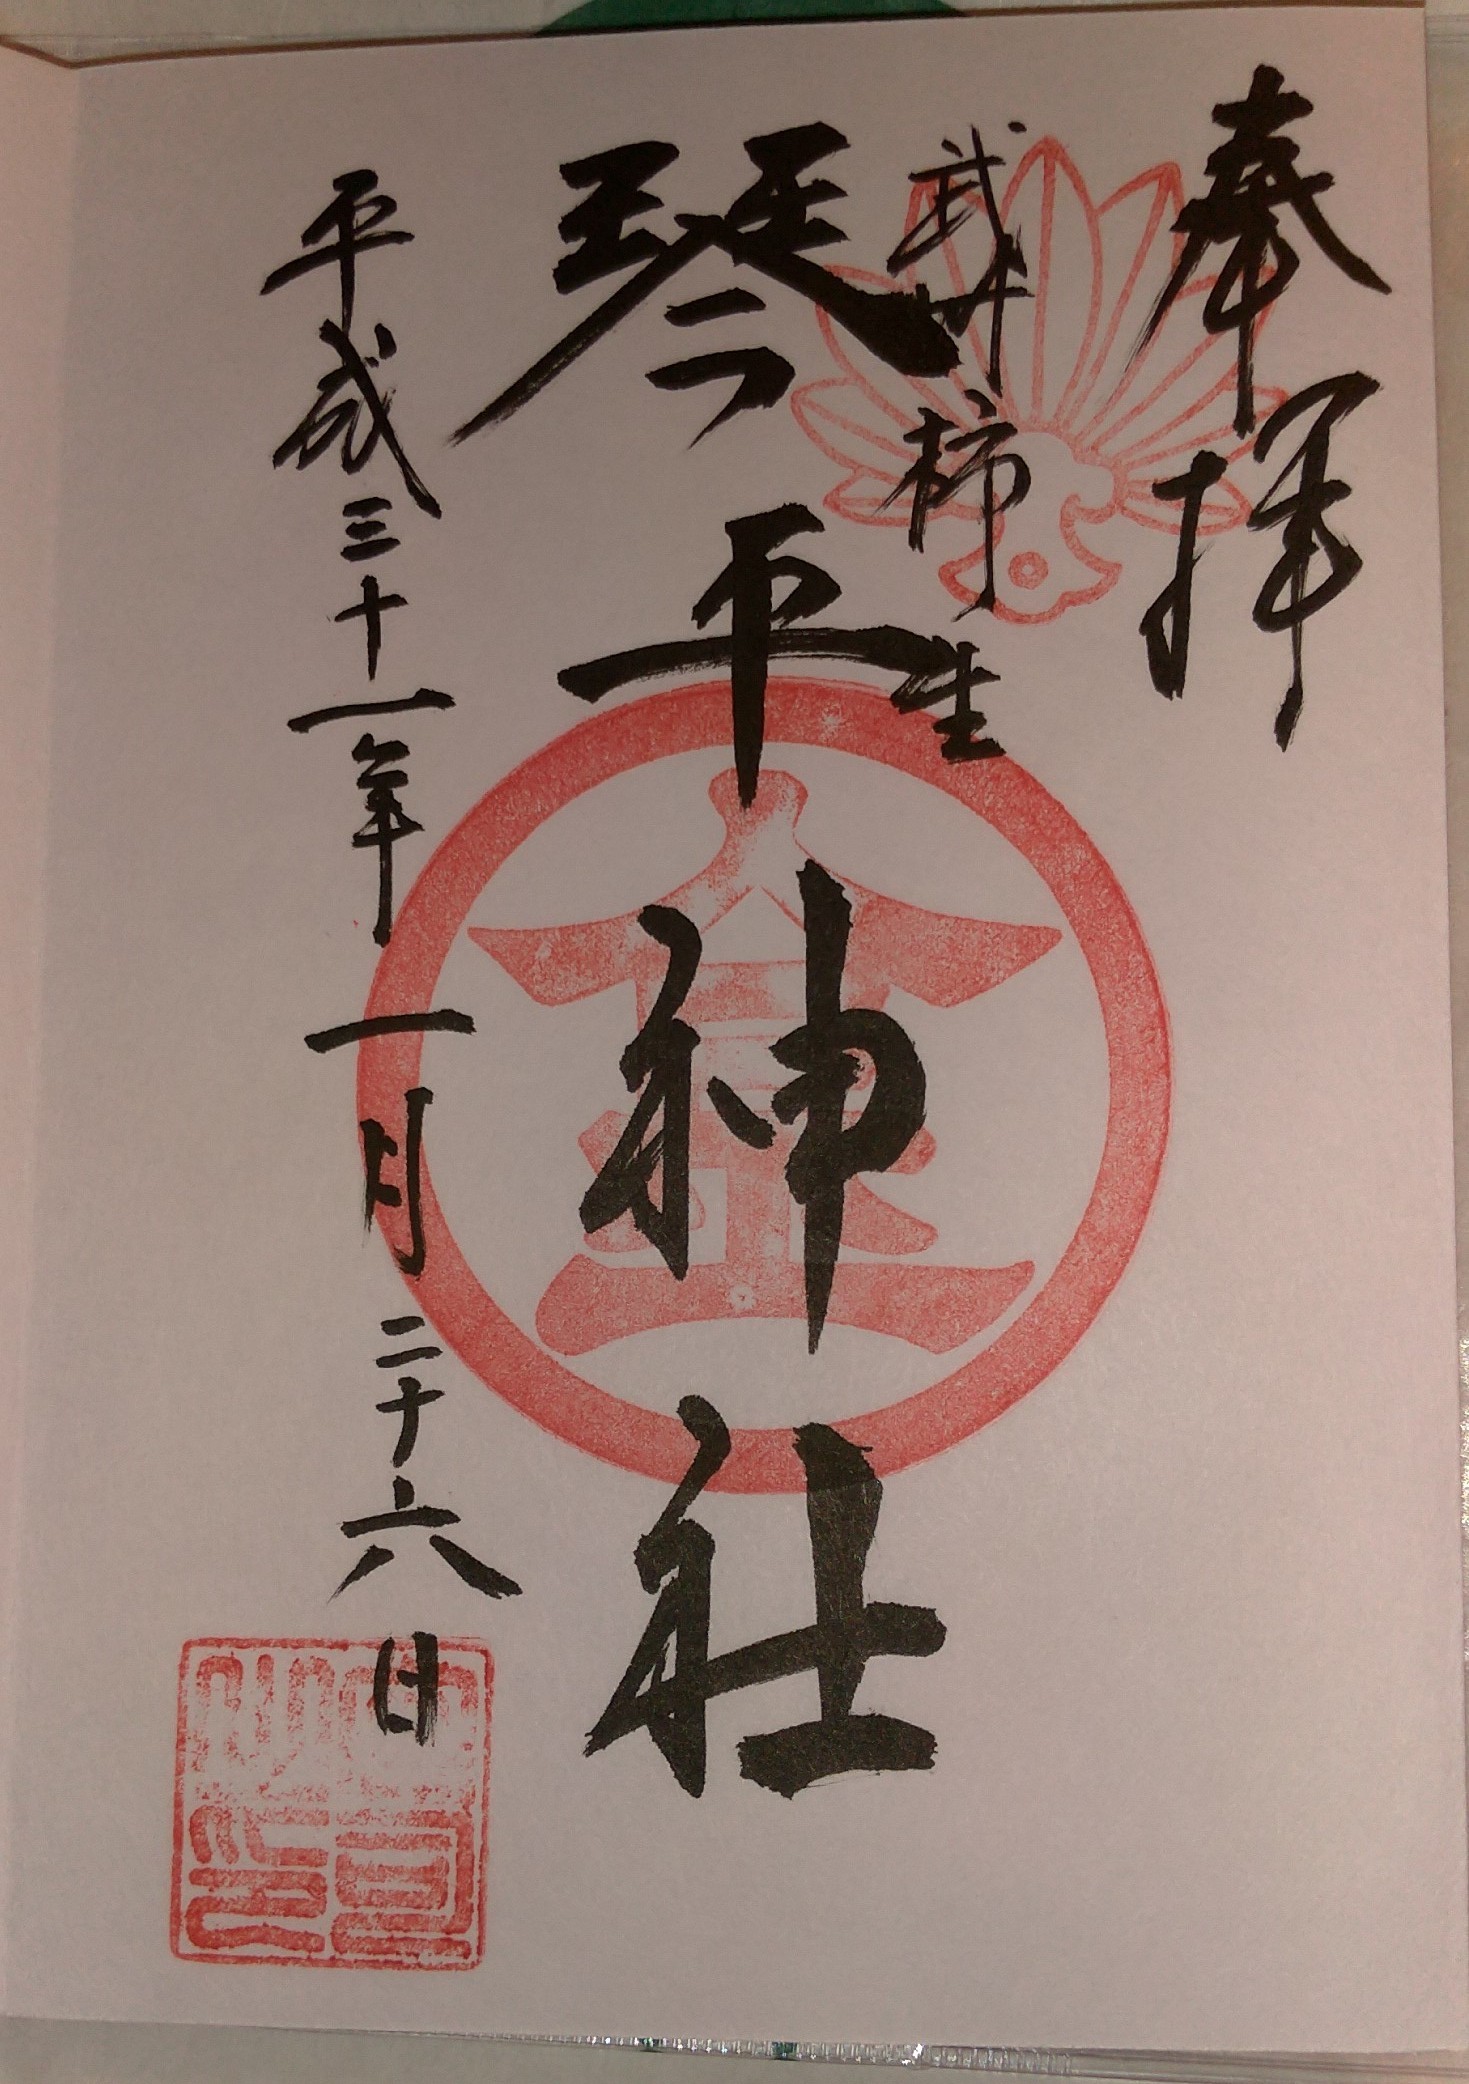 奉拝
武州柿生
琴平神社
平成三十一年一月二十六日
金